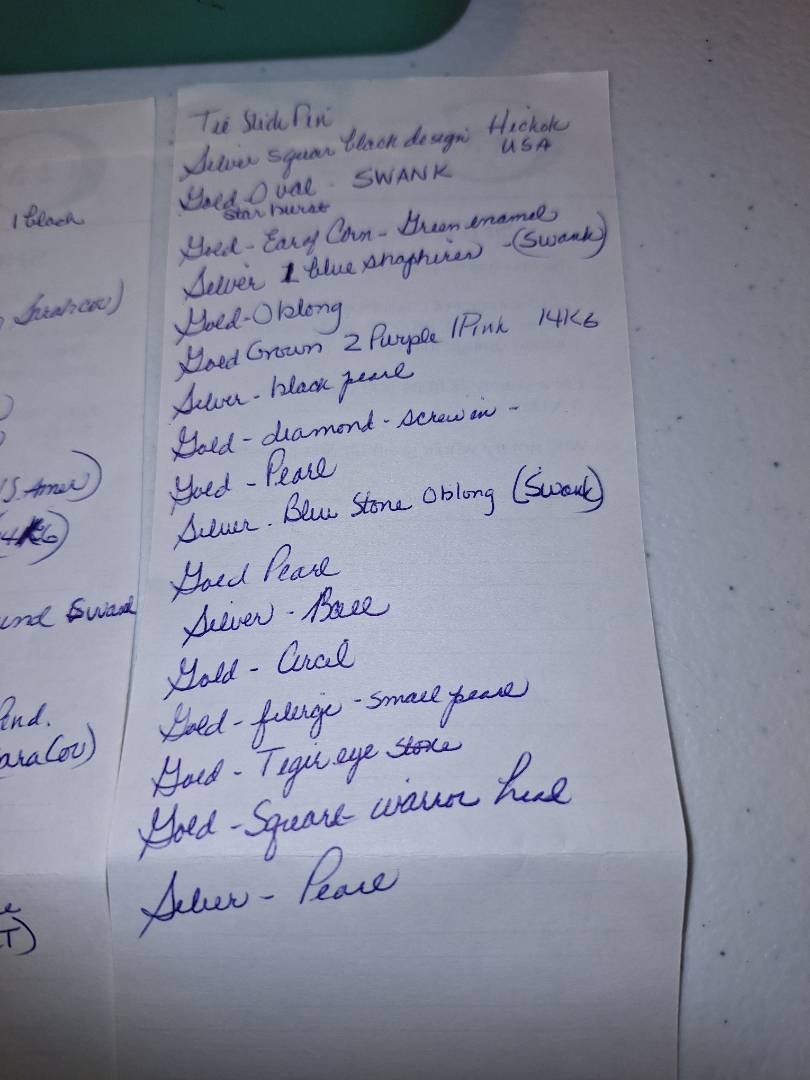 1 black
Sarahcov)
(S. Amer)
14KG)
and Swank
Pend.
SaraCov)
T)
Tie Slide Pin
Silver squar black design Hickok
USA
Gold Oval - SWANK
Starburst
Gold - Ear of Corn - Green enamel
Silver 1 blue shaphires - (Swank)
Gold - Oblong
Gold Crown 2 Purple 1 Pink 14KG
Silver - black pearl
Gold - diamond - screw in -
Gold - Pearl
Silver - Blue Stone Oblong (Swank)
Gold Pearl
Silver - Ball
Gold - Circil
Gold - filerge - small pearl
Gold - Tegir eye stone
Gold - Square - warror head
Silver - Pearl